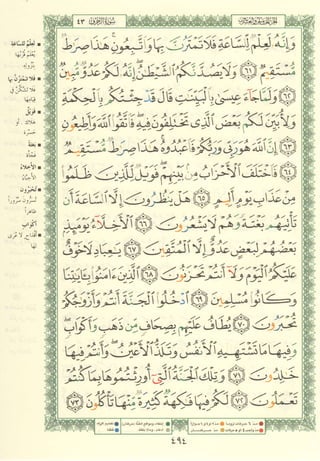 وَإِنَّهُۥ لَعِلْمٌ لِّلسَّاعَةِ فَلَا تَمْتَرُنَّ بِهَا وَٱتَّبِعُونِ ۚ هَٰذَا صِرَٰطٌ
مُّسْتَقِيمٌ ٦١ وَلَا يَصُدَّنَّكُمُ ٱلشَّيْطَٰنُ ۖ إِنَّهُۥ لَكُمْ عَدُوٌّ مُّبِينٌ
٦٢ وَلَمَّا جَآءَ عِيسَىٰ بِٱلْبَيِّنَٰتِ قَالَ قَدْ جِئْتُكُم بِٱلْحِكْمَةِ
وَلِأُبَيِّنَ لَكُم بَعْضَ ٱلَّذِى تَخْتَلِفُونَ فِيهِ ۖ فَٱتَّقُوا۟ ٱللَّهَ وَأَطِيعُونِ
٦٣ إِنَّ ٱللَّهَ هُوَ رَبِّى وَرَبُّكُمْ فَٱعْبُدُوهُ ۚ هَٰذَا صِرَٰطٌ مُّسْتَقِيمٌ
٦٤ فَٱخْتَلَفَ ٱلْأَحْزَابُ مِنۢ بَيْنِهِمْ ۖ فَوَيْلٌ لِّلَّذِينَ ظَلَمُوا۟
مِنْ عَذَابِ يَوْمٍ أَلِيمٍ ٦٥ هَلْ يَنظُرُونَ إِلَّا ٱلسَّاعَةَ أَن
تَأْتِيَهُم بَغْتَةً وَهُمْ لَا يَشْعُرُونَ ٦٦ ٱلْأَخِلَّآءُ يَوْمَئِذٍۭ
بَعْضُهُمْ لِبَعْضٍ عَدُوٌّ إِلَّا ٱلْمُتَّقِينَ ٦٧ يَٰعِبَادِ لَا خَوْفٌ
عَلَيْكُمُ ٱلْيَوْمَ وَلَآ أَنتُمْ تَحْزَنُونَ ٦٨ ٱلَّذِينَ ءَامَنُوا۟ بِـَٔايَٰتِنَا
وَكَانُوا۟ مُسْلِمِينَ ٦٩ ٱدْخُلُوا۟ ٱلْجَنَّةَ أَنتُمْ وَأَزْوَٰجُكُمْ
تُحْبَرُونَ ٧٠ يُطَافُ عَلَيْهِم بِصِحَافٍ مِّن ذَهَبٍ وَأَكْوَابٍ ۖ
وَفِيهَا مَا تَشْتَهِيهِ ٱلْأَنفُسُ وَتَلَذُّ ٱلْأَعْيُنُ ۖ وَأَنتُمْ فِيهَا
خَٰلِدُونَ ٧١ وَتِلْكَ ٱلْجَنَّةُ ٱلَّتِىٓ أُورِثْتُمُوهَا بِمَا كُنتُمْ
تَعْمَلُونَ ٧٢ لَكُمْ فِيهَا فَٰكِهَةٌ كَثِيرَةٌ مِّنْهَا تَأْكُلُونَ ٧٣
٤٩٤